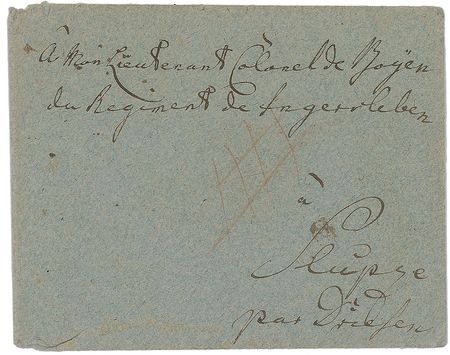 à Mon Lieutenant Colonel de Boÿen
du Regiment de Ingersleben
à
par Driesen